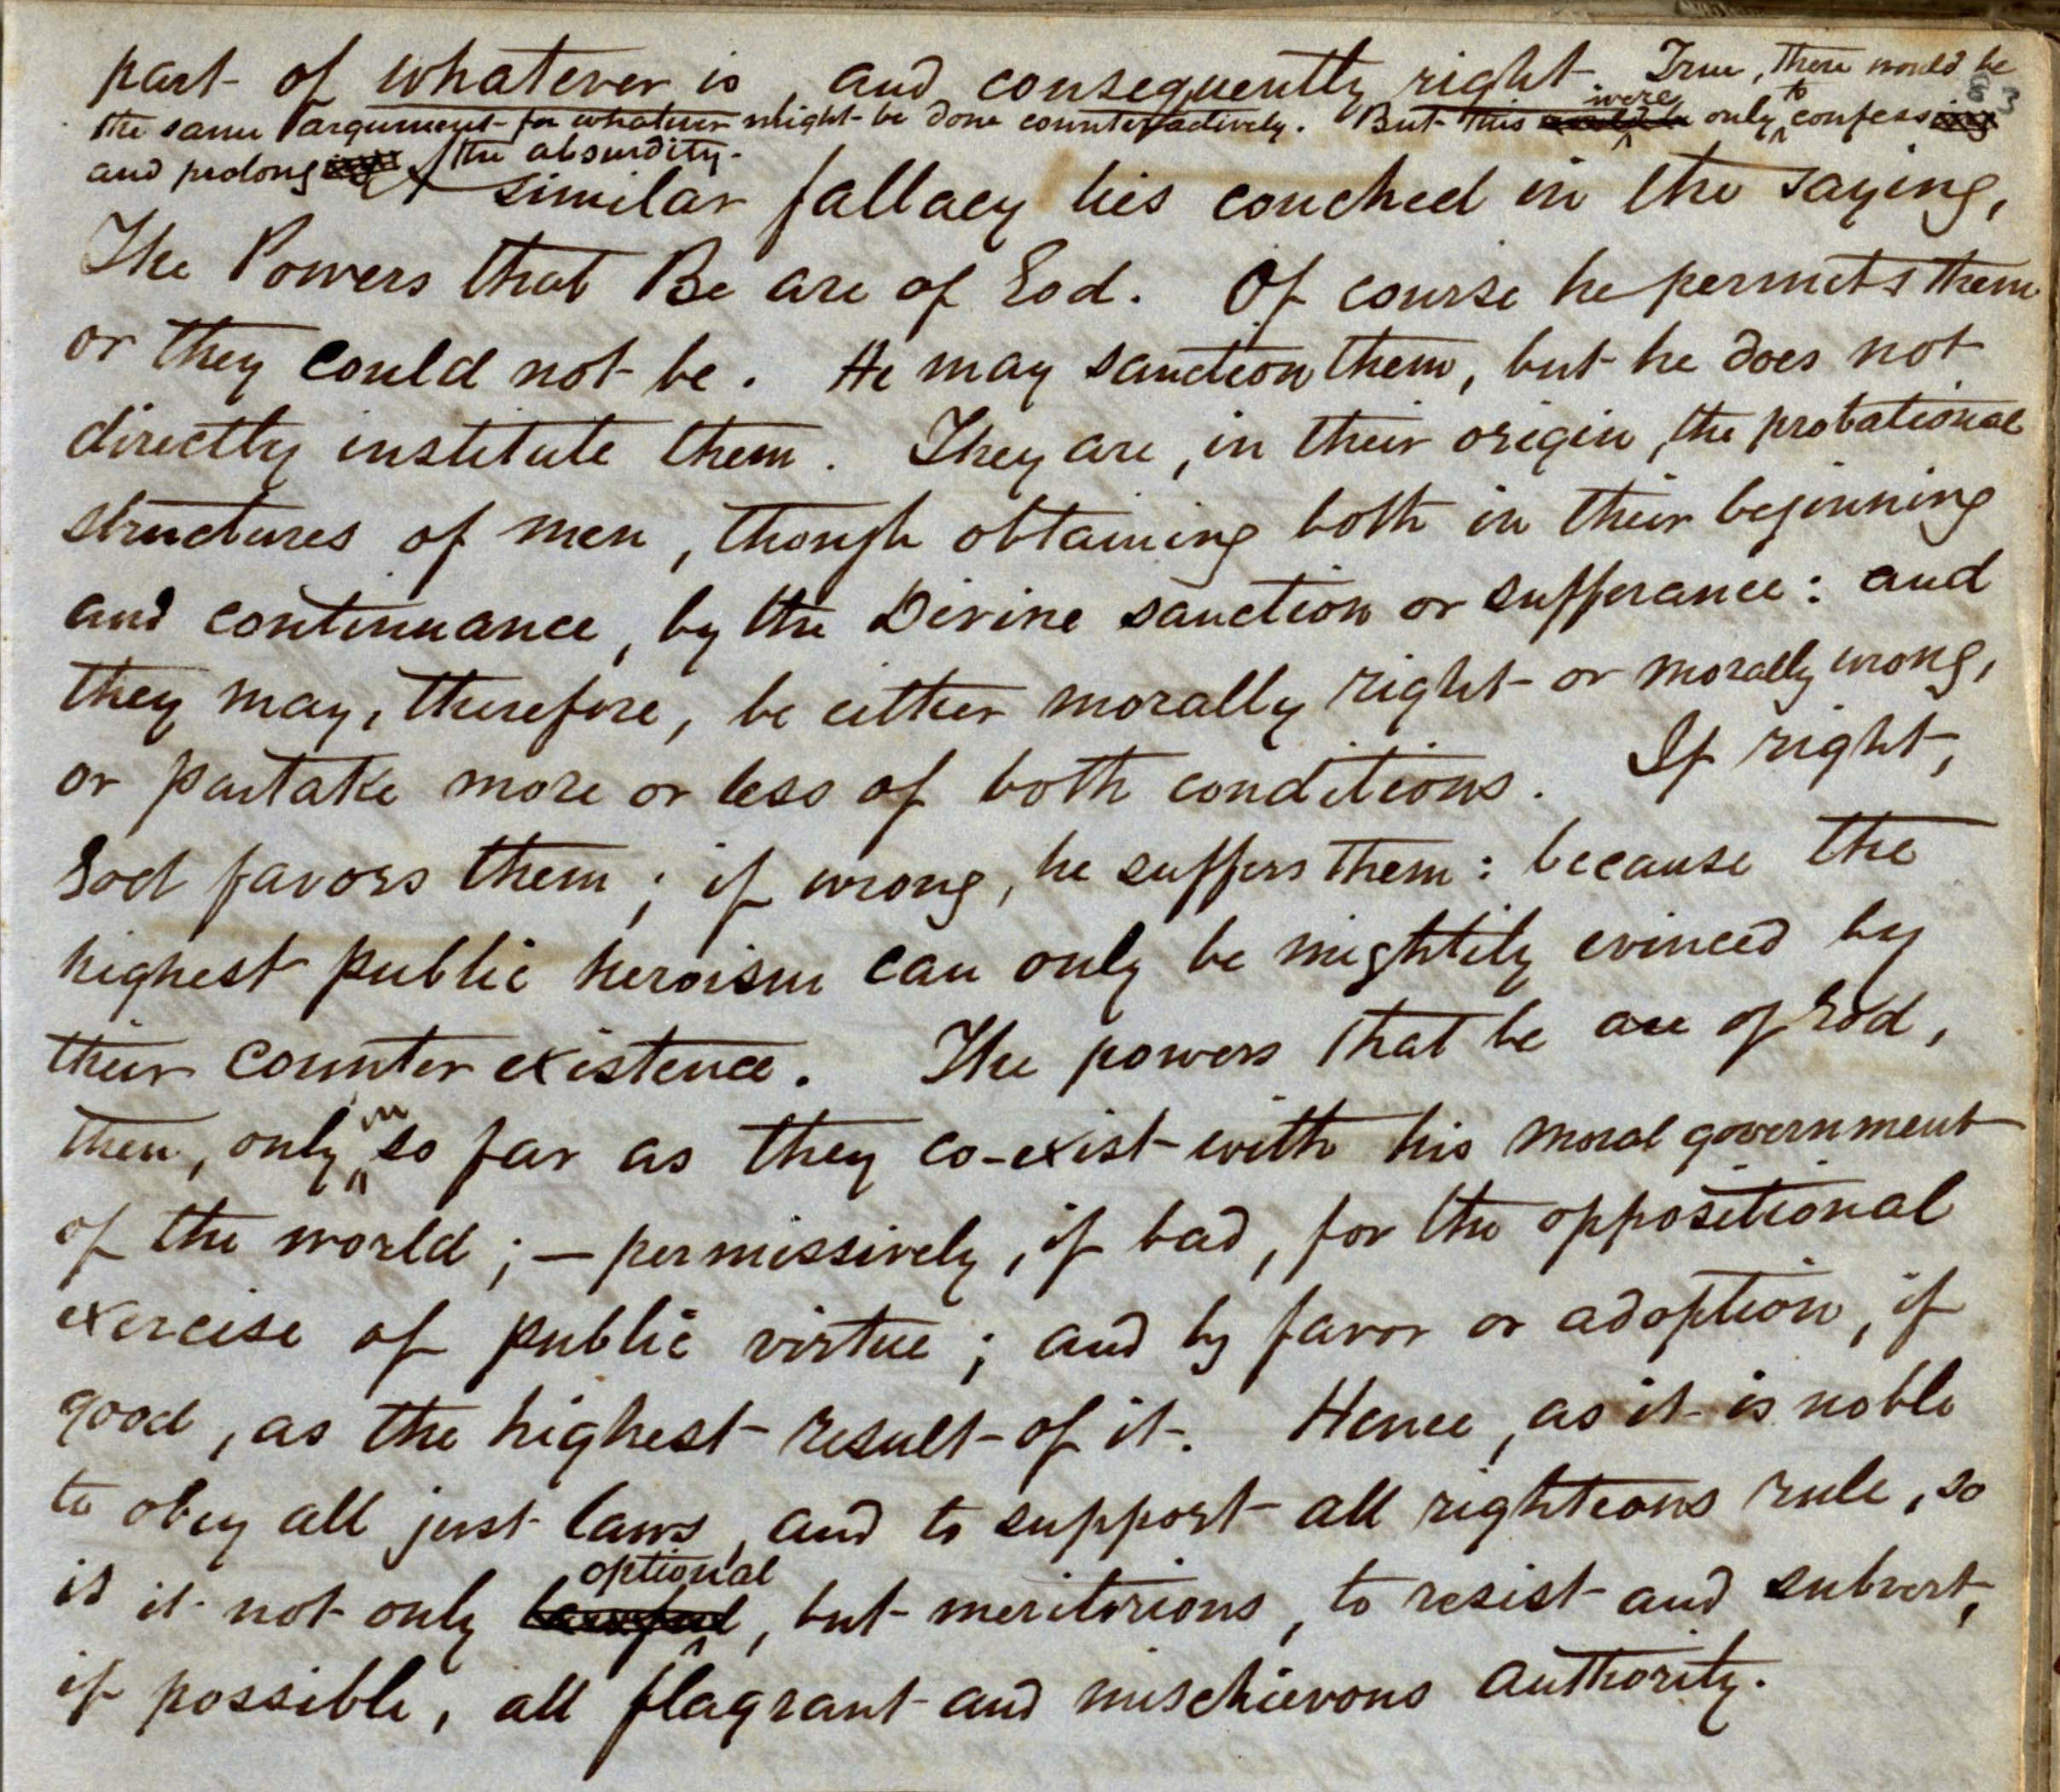 part of whatever is, and consequently right. True, there would be
83
the same argument for whatever might be done counteractively. But this were only to confess
and prolong the absurdity.
A similar fallacy lies couched in the saying,
The Powers that Be are of God. Of course he permits them
or they could not be. He may sanction them, but he does not
directly institute them. They are, in their origin, the probational
structures of men, though obtaining both in their beginning
and continuance, by the Divine sanction or sufferance: and
they may, therefore, be either morally right or morally wrong,
or partake more or less of both conditions. If right,
God favors them; if wrong, he suffers them: because the
highest public heroism can only be mightily evinced by
their counter existence. The powers that be are of God,
then, only in so far as they co-exist with his moral government
of the world; — permissively, if bad, for the oppositional
exercise of public virtue; and by favor or adoption, if
good, as the highest result of it. Hence, as it is noble
to obey all just laws, and to support all righteous rule, so
is it not only lawful optional, but meritorious, to resist and subvert,
if possible, all flagrant and mischievous authority.